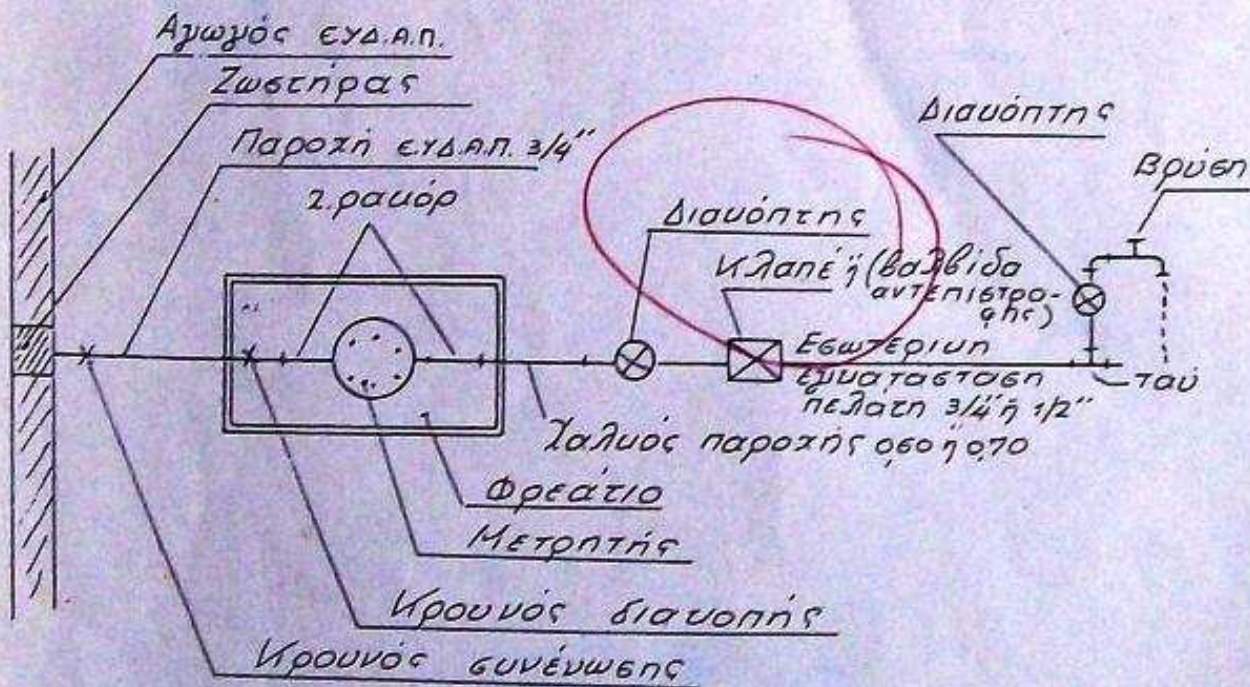 Αγωγός ΕΥΔ.Α.Π.
Ζωστήρας
Παροχή ΕΥΔ.Α.Π. 3/4"
2.ρακόρ
Διακόπτης
Βρύση
Διακόπτης
Κλαπέ ή (βαλβίδα
αντεπιστρο-
φης)
Εσωτερικη
εγκατασταση
πελάτη 3/4" ή 1/2"
ταύ
Χαλκός παροχής 0,60 ή 0,70
Φρεάτιο
Μετρητής
Κρουνός διακοπής
Κρουνός συνένωσης